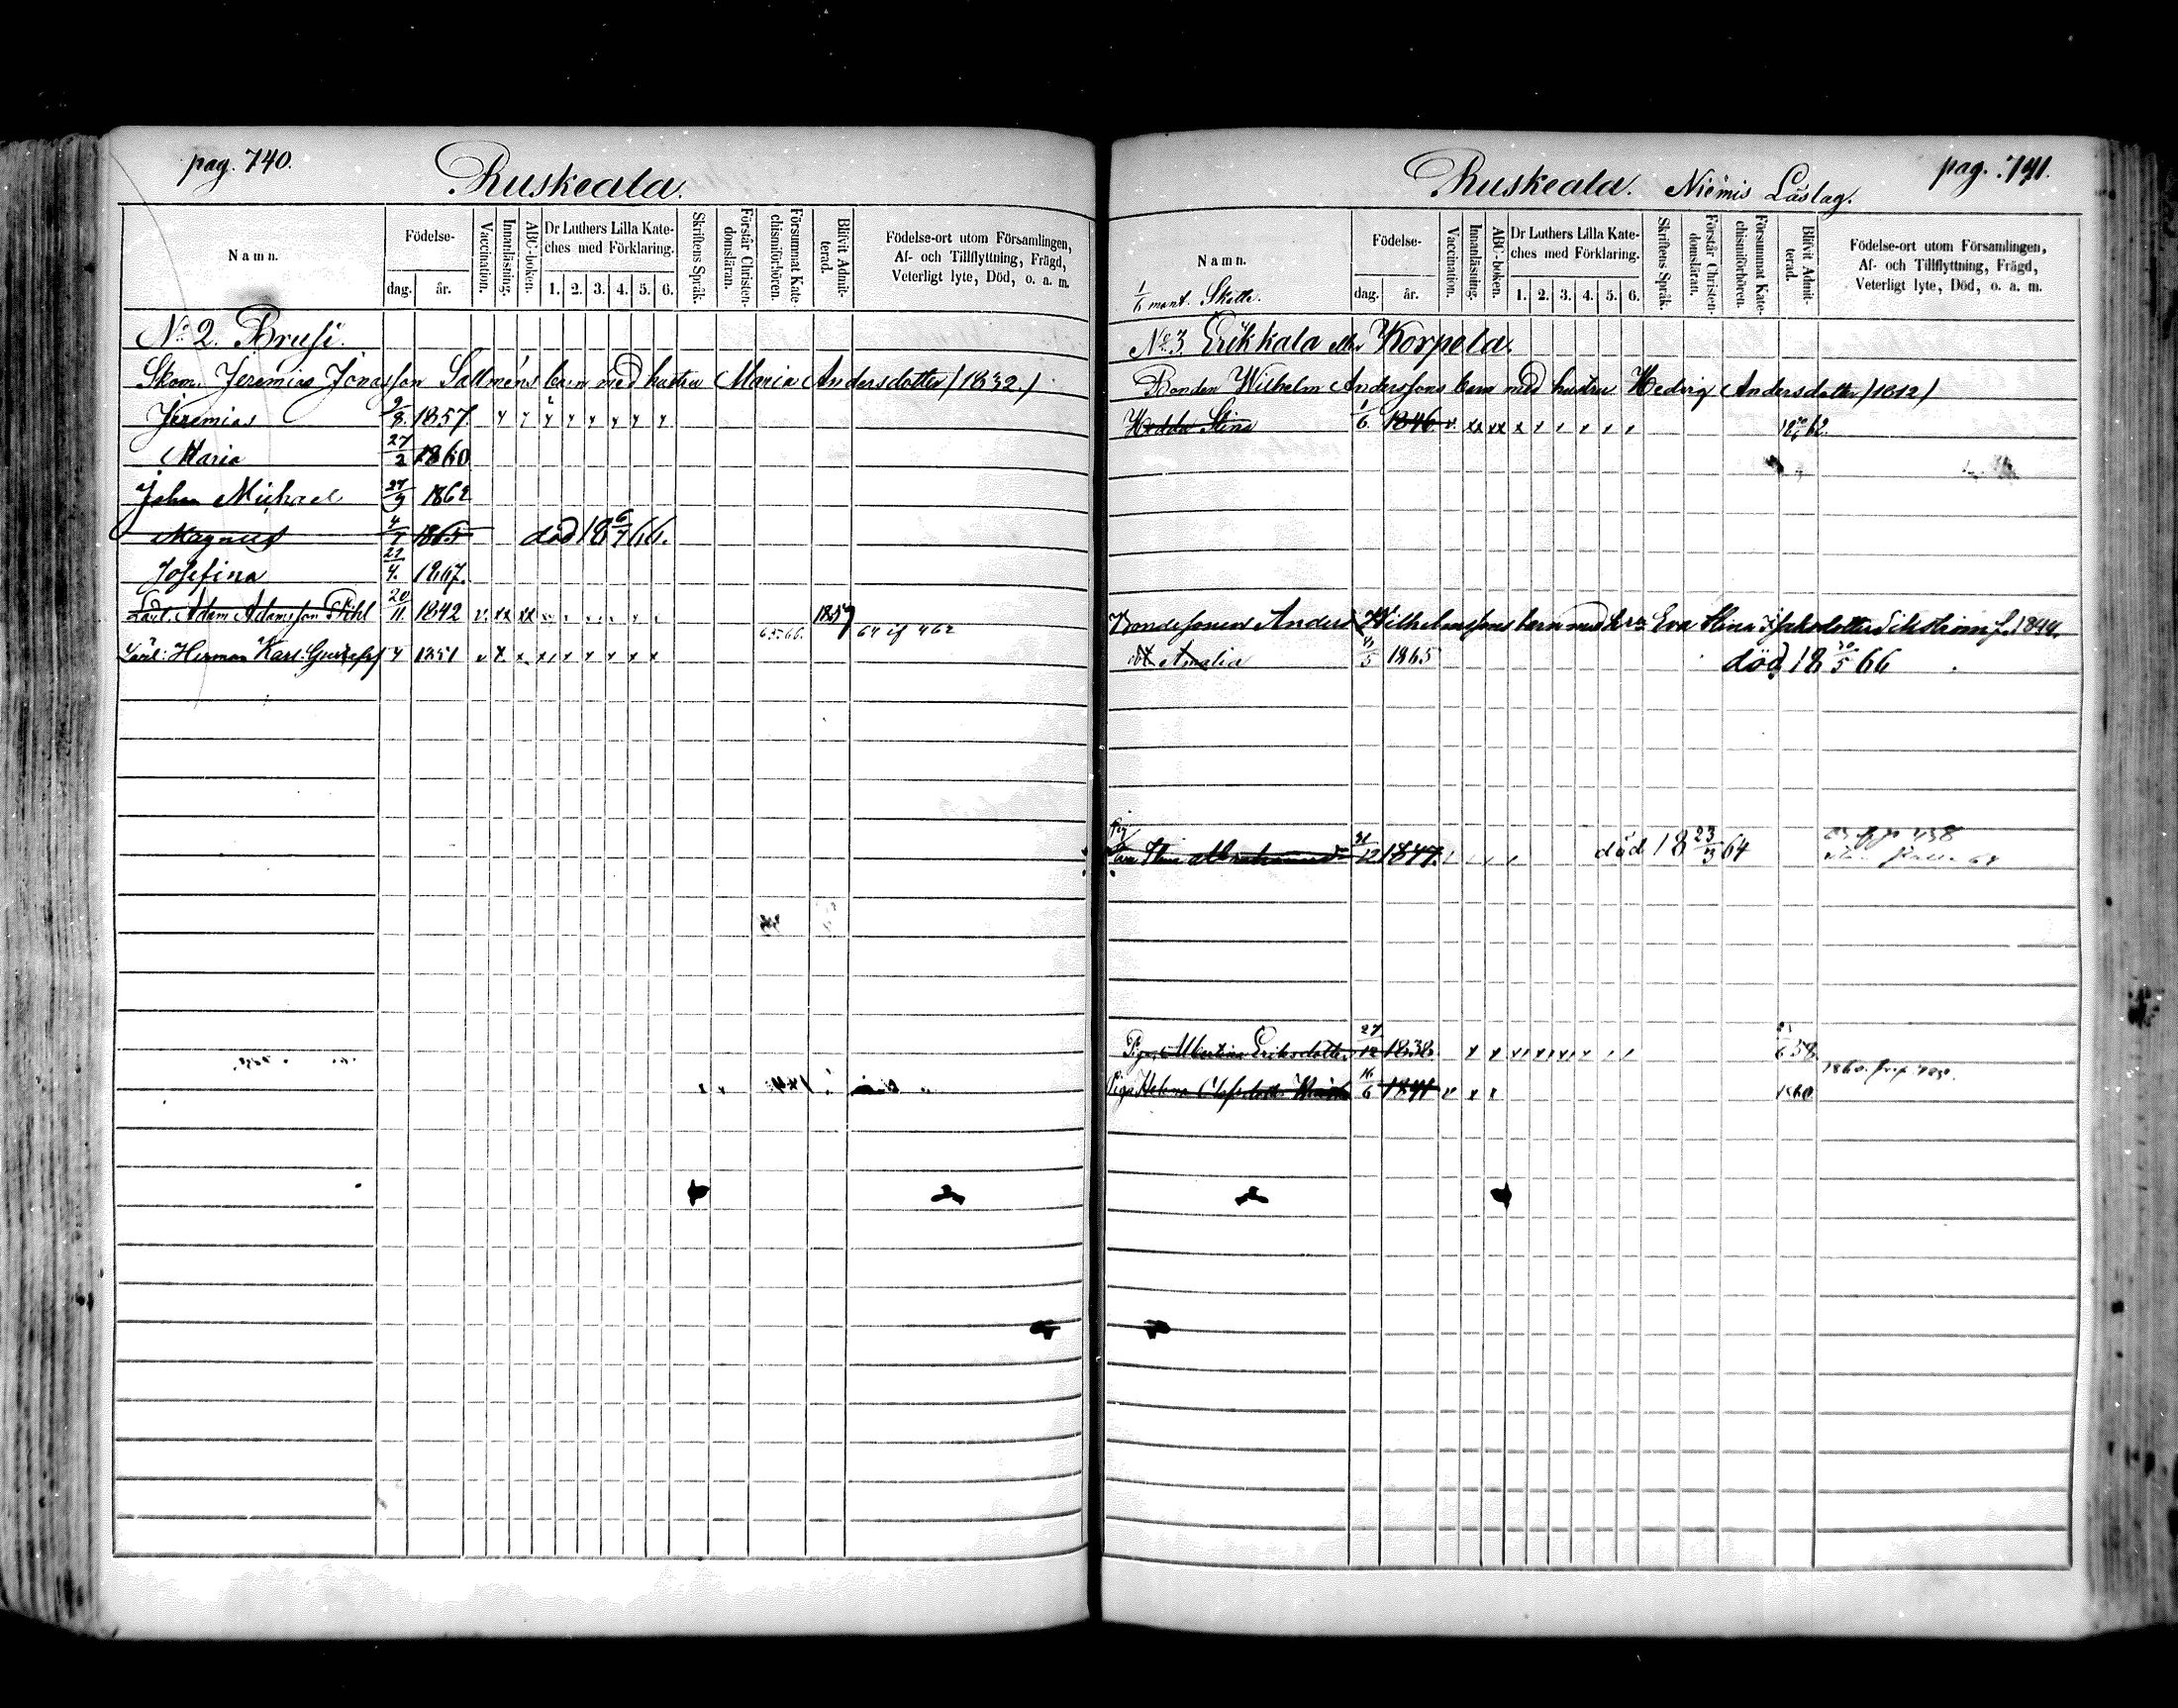 pag. 740.
Ruskeala.
Namn.
Födelse-
dag.
år.
Vaccination.
Innanläsning.
ABC-boken.
Dr Luthers Lilla Kate-
ches med Förklaring.
1. 2. 3. 4. 5. 6.
Skriftens Språk.
Förstår Christen-
domsläran.
Försummat Kate-
chismiförhören.
Blifvit Admit-
terad.
Födelse-ort utom Församlingen,
Af- och Tillflyttning, Frägd,
Veterligt lyte, Död, o. a. m.
No 2. Brusi.
Skom. Jeremias Jonasson Sallméns barn med hustru Maria Andersdotter (1832.)
Jeremias 2/8 1857.
Maria 27/2 1860
Johan Michael 27/9 1862
Magnus 4/1 1865 död 18 6/7 66.
Josefina 22/4. 1867.
Lärl. Adam Adamsson Pihl 20/11 1842 1857
65-66.
64 if 462
Lärl: Herman Karl Gustafss 4 1851
pag. 741.
Ruskeala. Niemis Läslag.
Namn.
1/6 mant. Skatte.
Födelse-
dag.
år.
Vaccination.
Innanläsning.
ABC-boken.
Dr Luthers Lilla Kate-
ches med Förklaring.
1. 2. 3. 4. 5. 6.
Skriftens Språk.
Förstår Christen-
domsläran.
Försummat Kate-
chismiförhören.
Blifvit Admit-
terad.
Födelse-ort utom Församlingen,
Af- och Tillflyttning, Frägd,
Veterligt lyte, Död, o. a. m.
No 3. Erikkala Korpela.
Bonden Wilhelm Anderssons barn med hustru Hedvig Andersdotter (1812)
Hedda Stina 1/6. 1846 62.
Bondesonen Anders Wilhelmssons barn med Eva Stina f. 1844.
Amalia 5 1865 död 18 5 66
Stina 31/12 1847. död 18 23/3 64
Piga Albertina Eriksdotter 27/12 1838. 58
1860.
Piga Helena 16/6 1841 1860